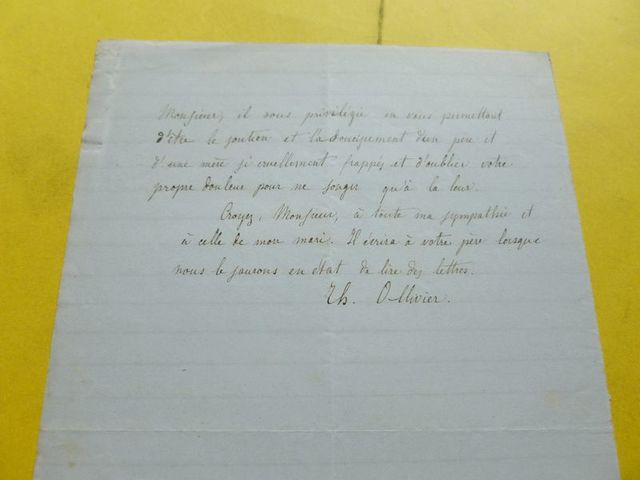 Monsieur, il vous privilégie en vous permettant
d'être le soutien et la d'un père et
d'une mère si cruellement frappés et d'oublier votre
propre douleur pour ne songer qu'à la leur.
Croyez, Monsieur, à toute ma sympathie et
à celle de mon mari. Il écrira à votre père lorsque
nous le saurons en état de lire des lettres.
Th. Ollivier.